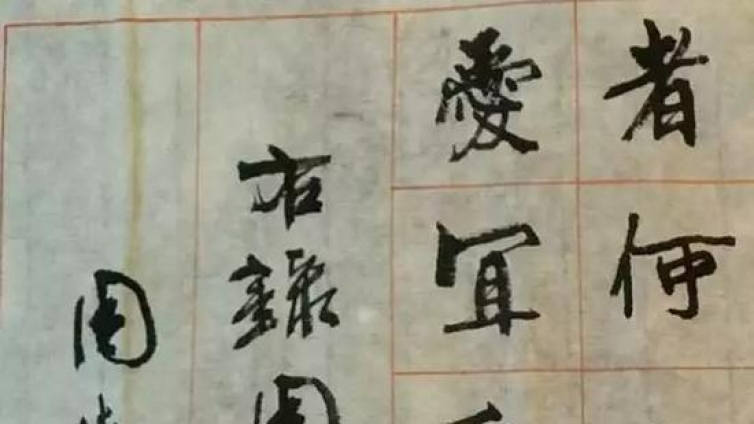 者何
愛宜
右錄周
周